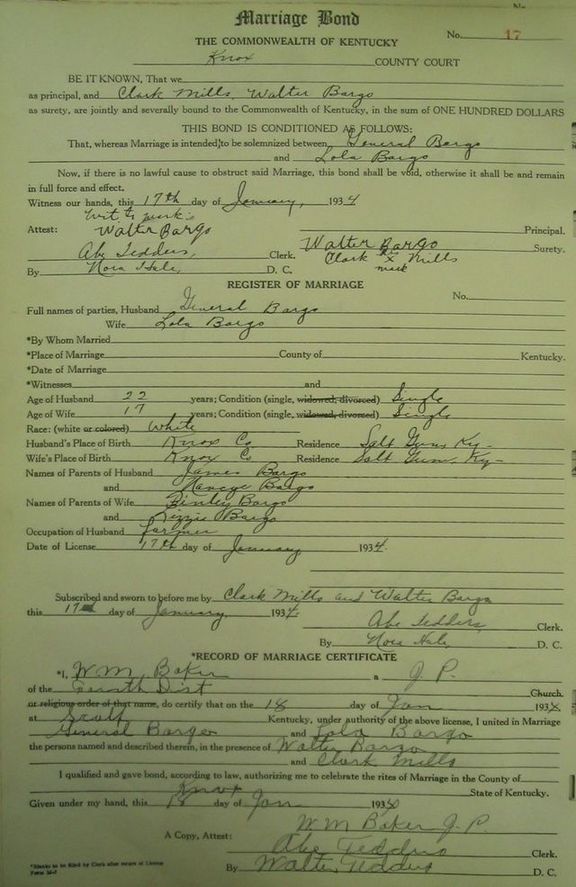 Marriage Bond
THE COMMONWEALTH OF KENTUCKY
No. 17
Knox COUNTY COURT
BE IT KNOWN, That we
as principal, and Clark Mills, Walter Bargo
as surety, are jointly and severally bound to the Commonwealth of Kentucky, in the sum of ONE HUNDRED DOLLARS
THIS BOND IS CONDITIONED AS FOLLOWS:
That, whereas Marriage is intended to be solemnized between General Bargo
and Lola Bargo
Now, if there is no lawful cause to obstruct said Marriage, this bond shall be void, otherwise it shall be and remain
in full force and effect.
Witness our hands, this 17th day of January, 1934
Wit to mark:
Attest: Walter Bargo Principal.
Abe Tedders, Clerk. Walter Bargo Surety.
Clark his x mark Mills
By Nora Hale, D. C.
REGISTER OF MARRIAGE
No.
Full names of parties, Husband General Bargo
Wife Lola Bargo
*By Whom Married
*Place of Marriage County of Kentucky.
*Date of Marriage
*Witnesses and
Age of Husband 22 years; Condition (single, widowed, divorced) Single
Age of Wife 17 years; Condition (single, widowed, divorced) Single
Race: (white or colored) White
Husband's Place of Birth Knox Co Residence Salt Gum, Ky-
Wife's Place of Birth Knox Co Residence Salt Gum, Ky-
Names of Parents of Husband James Bargo
and Nancye Bargo
Names of Parents of Wife Finley Bargo
and Lizzie Bargo
Occupation of Husband farmer
Date of License 17th day of January 1934.
Subscribed and sworn to before me by Clark Mills and Walter Bargo
this 17 day of January, 1934.
Abe Tedders, Clerk.
By Nora Hale, D. C.
*RECORD OF MARRIAGE CERTIFICATE
*I, W. M. Baker a J. P.
of the Fourth Dist Church.
or religious order of that name, do certify that on the 18 day of Jan 193
at Scalf Kentucky, under authority of the above license, I united in Marriage
General Bargo and Lola Bargo
the persons named and described therein, in the presence of Walter Bargo
and Clark Mills
I qualified and gave bond, according to law, authorizing me to celebrate the rites of Marriage in the County of
Knox State of Kentucky.
Given under my hand, this 18 day of Jan 193
W. M Baker J. P
A Copy, Attest: Abe Tedders Clerk.
By Walter Tedders D. C.
*Blanks to be filed by Clerk after return of License